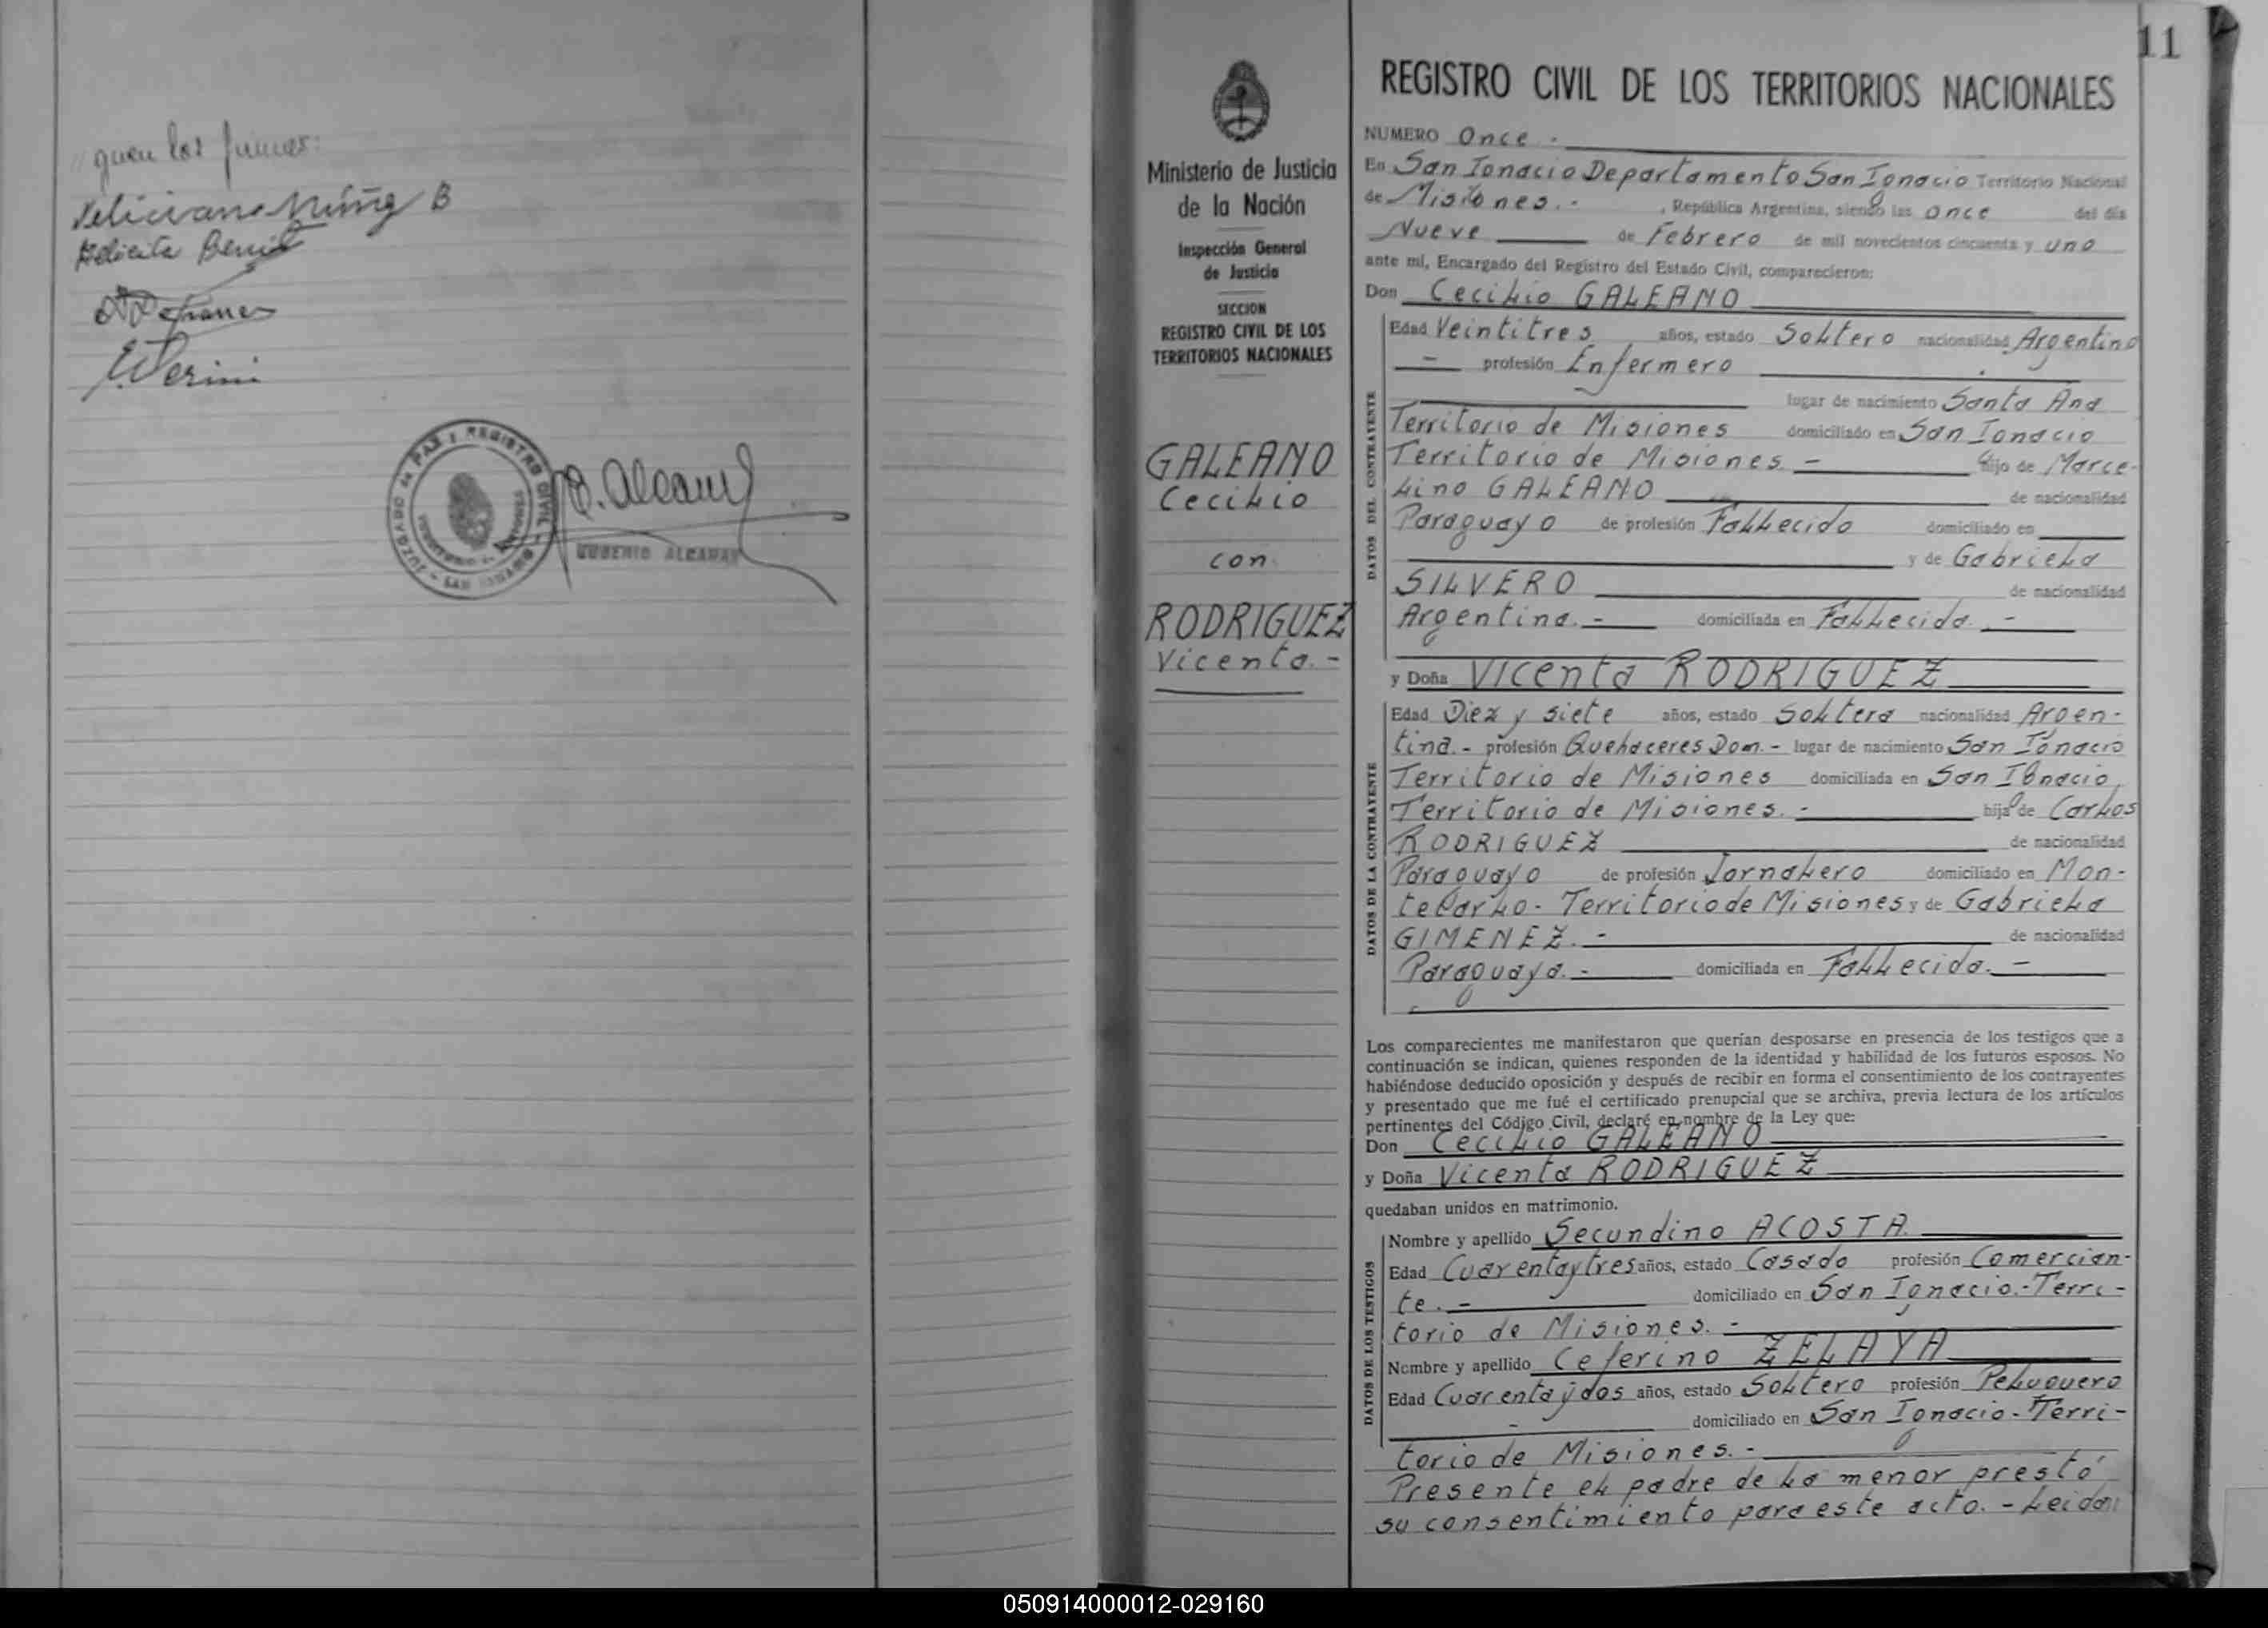 guen las firmas:
Feliciano Núñez B
E. Verini
JUZGADO de PAZ y REGISTRO CIVIL
EUGENIO ALCARAZ
11
REGISTRO CIVIL DE LOS TERRITORIOS NACIONALES
Ministerio de Justicia
de la Nación
Inspección General
de Justicia
SECCION
REGISTRO CIVIL DE LOS
TERRITORIOS NACIONALES
GALEANO
Cecilio
con
RODRIGUEZ
Vicenta.-
NUMERO Once.-
En San Ignacio Departamento San Ignacio Territorio Nacional
de Misiones.- , República Argentina, siendo las once del día
Nueve de Febrero de mil novecientos cincuenta y uno
ante mí, Encargado del Registro del Estado Civil, comparecieron:
Don Cecilio GALEANO
DATOS DEL CONTRAYENTE
Edad Veintitres años, estado Soltero nacionalidad Argentino
- profesión Enfermero
lugar de nacimiento Santa Ana
Territorio de Misiones domiciliado en San Ignacio
Territorio de Misiones.- hijo de Marce-
lino GALEANO de nacionalidad
Paraguayo de profesión Fallecido domiciliado en
y de Gabriela
SILVERO de nacionalidad
Argentina.- domiciliada en Fallecida.-
y Doña Vicenta RODRIGUEZ
DATOS DE LA CONTRAYENTE
Edad Diez y siete años, estado Soltera nacionalidad Argen-
tina.- profesión Quehaceres Dom.- lugar de nacimiento San Ignacio
Territorio de Misiones domiciliada en San Ignacio
Territorio de Misiones.- hija de Carlos
RODRIGUEZ de nacionalidad
Paraguayo de profesión Jornalero domiciliado en Mon-
teCarlo- Territorio de Misiones y de Gabriela
GIMENEZ.- de nacionalidad
Paraguaya.- domiciliada en Fallecida.-
Los comparecientes me manifestaron que querían desposarse en presencia de los testigos que a
continuación se indican, quienes responden de la identidad y habilidad de los futuros esposos. No
habiéndose deducido oposición y después de recibir en forma el consentimiento de los contrayentes
y presentado que me fué el certificado prenupcial que se archiva, previa lectura de los artículos
pertinentes del Código Civil, declaré en nombre de la Ley que:
Don Cecilio GALEANO
y Doña Vicenta RODRIGUEZ
quedaban unidos en matrimonio.
DATOS DE LOS TESTIGOS
Nombre y apellido Secundino ACOSTA.
Edad Cuarentaytres años, estado Casado profesión Comercian-
te.- domiciliado en San Ignacio.-Terri-
torio de Misiones.-
Nombre y apellido Ceferino ZELAYA
Edad Cuarentaydos años, estado Soltero profesión Peluquero
- domiciliado en San Ignacio-Terri-
torio de Misiones.-
Presente el padre de la menor prestó
su consentimiento para este acto.-Leida
050914000012-029160